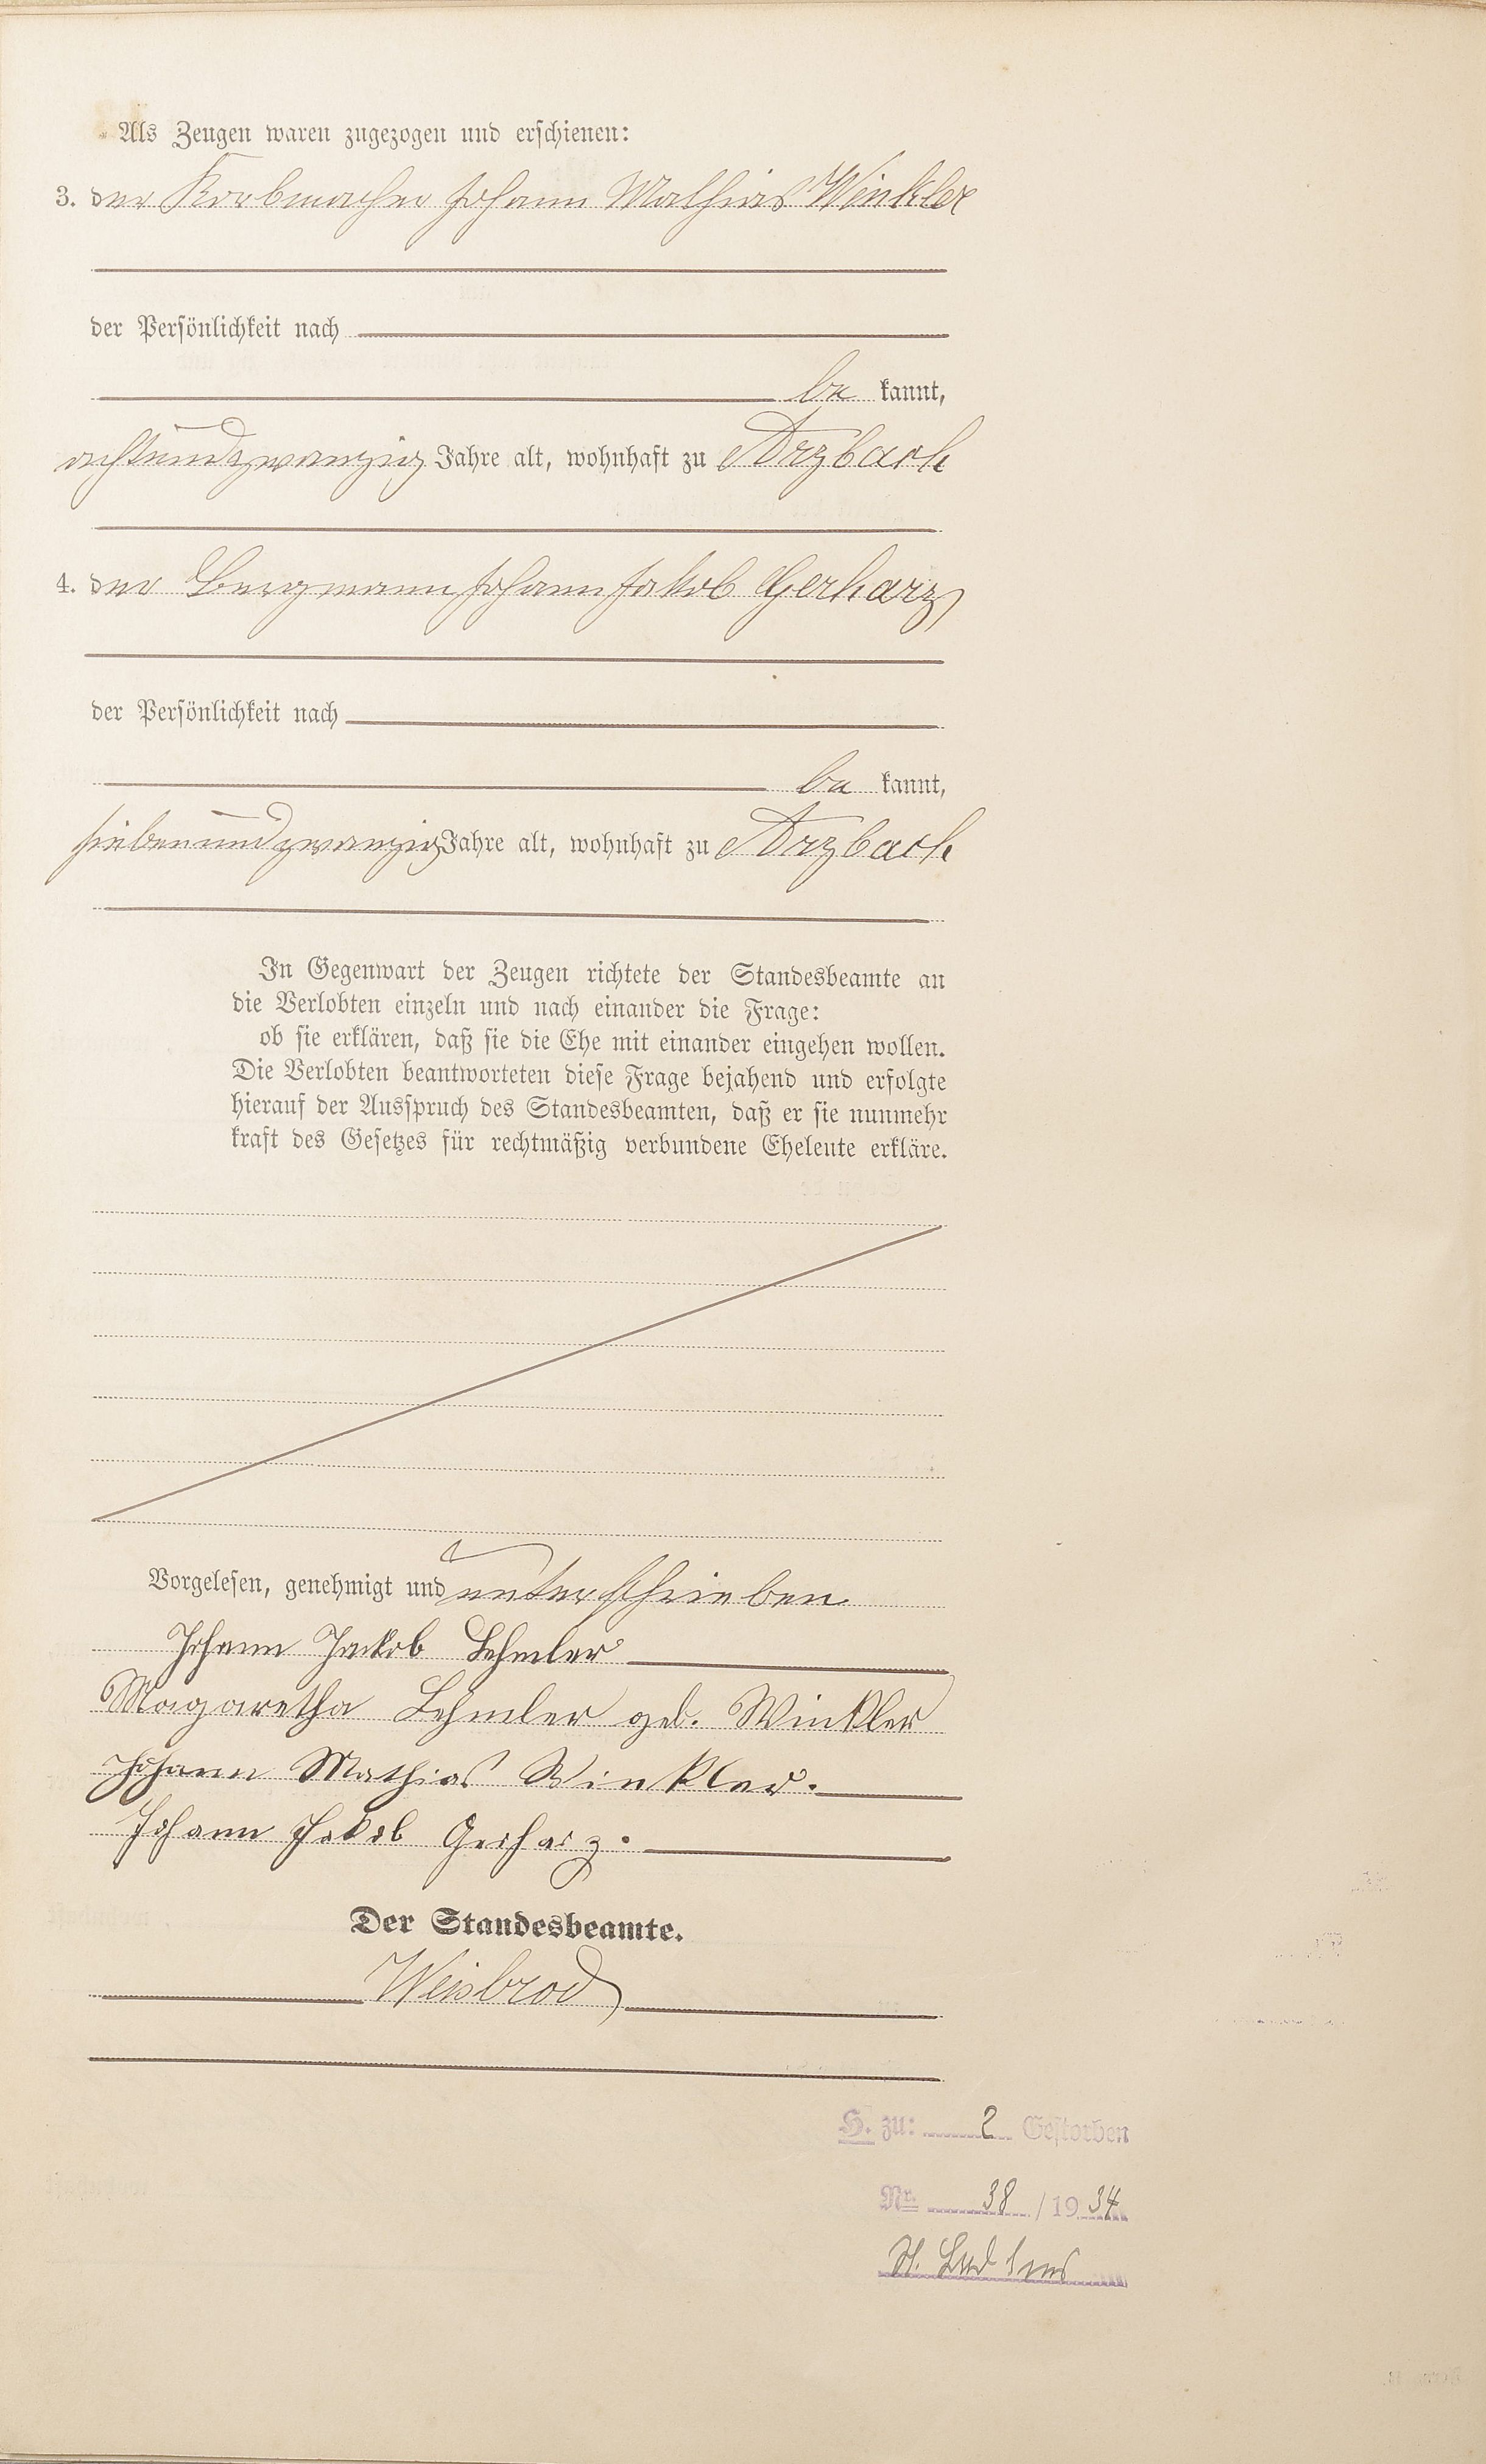 Als Zeugen waren zugezogen und erschienen:
3. der Korbmacher Johann Mathias Winkler
der Persönlichkeit nach
be kannt,
achtundzwanzig Jahre alt, wohnhaft zu Arzbach
4. der Bergmann Johann Jakob Gerharz
der Persönlichkeit nach
be kannt,
siebenundzwanzig Jahre alt, wohnhaft zu Arzbach
In Gegenwart der Zeugen richtete der Standesbeamte an
die Verlobten einzeln und nach einander die Frage:
ob sie erklären, daß sie die Ehe mit einander eingehen wollen.
Die Verlobten beantworteten diese Frage bejahend und erfolgte
hierauf der Ausspruch des Standesbeamten, daß er sie nunmehr
kraft des Gesetzes für rechtmäßig verbundene Eheleute erkläre.
Vorgelesen, genehmigt und unterschrieben
Johann Jackob Lehmler
Magaretha Lehmler geb. Winkler
Johann Mathias Winkler.
Johann Jakob Gerharz.
Der Standesbeamte.
Weisbrod
H. zu: 2 Gestorben
Nr. 38 / 1934
St.